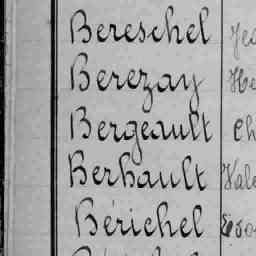 Bereschel
Berezay
Bergeault
Berhault
Bérichel